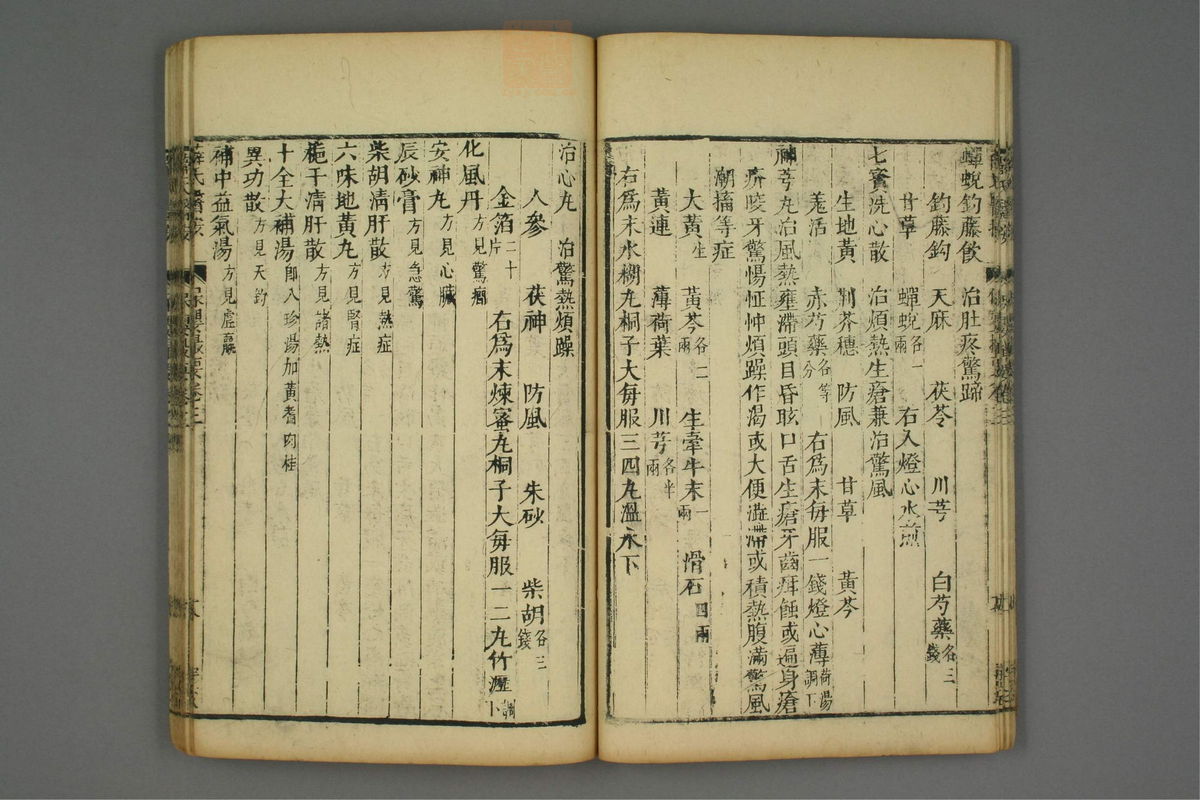 蟬蛻釣藤飲　治肚疼驚啼
釣藤鈎　天麻　茯苓　川芎　白芍藥各三錢
甘草　蟬蛻各一兩　右入燈心水煎
七寶洗心散　治煩熱生瘡兼治驚風
生地黃　荆芥穗　防風　甘草　黃芩
羗活　赤芍藥各等分　右爲末每服一錢燈心薄荷湯調下
神芎丸治風熱壅滯頭目昏眩口舌生瘡牙齒疳蝕或遍身瘡
疥咬牙驚惕怔忡煩躁作渴或大便澁滯或積熱腹滿驚風
潮搐等症
大黃生　黃芩各二兩　生牽牛末一兩　滑石四兩
黃連　薄荷葉　川芎各半兩
右爲末水糊丸桐子大每服三四丸溫水下
治心丸　治驚熱煩躁
人參　茯神　防風　朱砂　柴胡各三錢
金箔二十片　右爲末煉蜜丸桐子大每服一二丸竹瀝調下
化風丹方見驚癇
安神丸方見心臟
辰砂膏方見急驚
柴胡清肝散方見熱症
六味地黃丸方見腎症
梔子清肝散方見諸熱
十全大補湯即八珍湯加黃耆肉桂
異功散方見天釣
補中益氣湯方見虛羸
薛氏醫按　保嬰撮要卷三